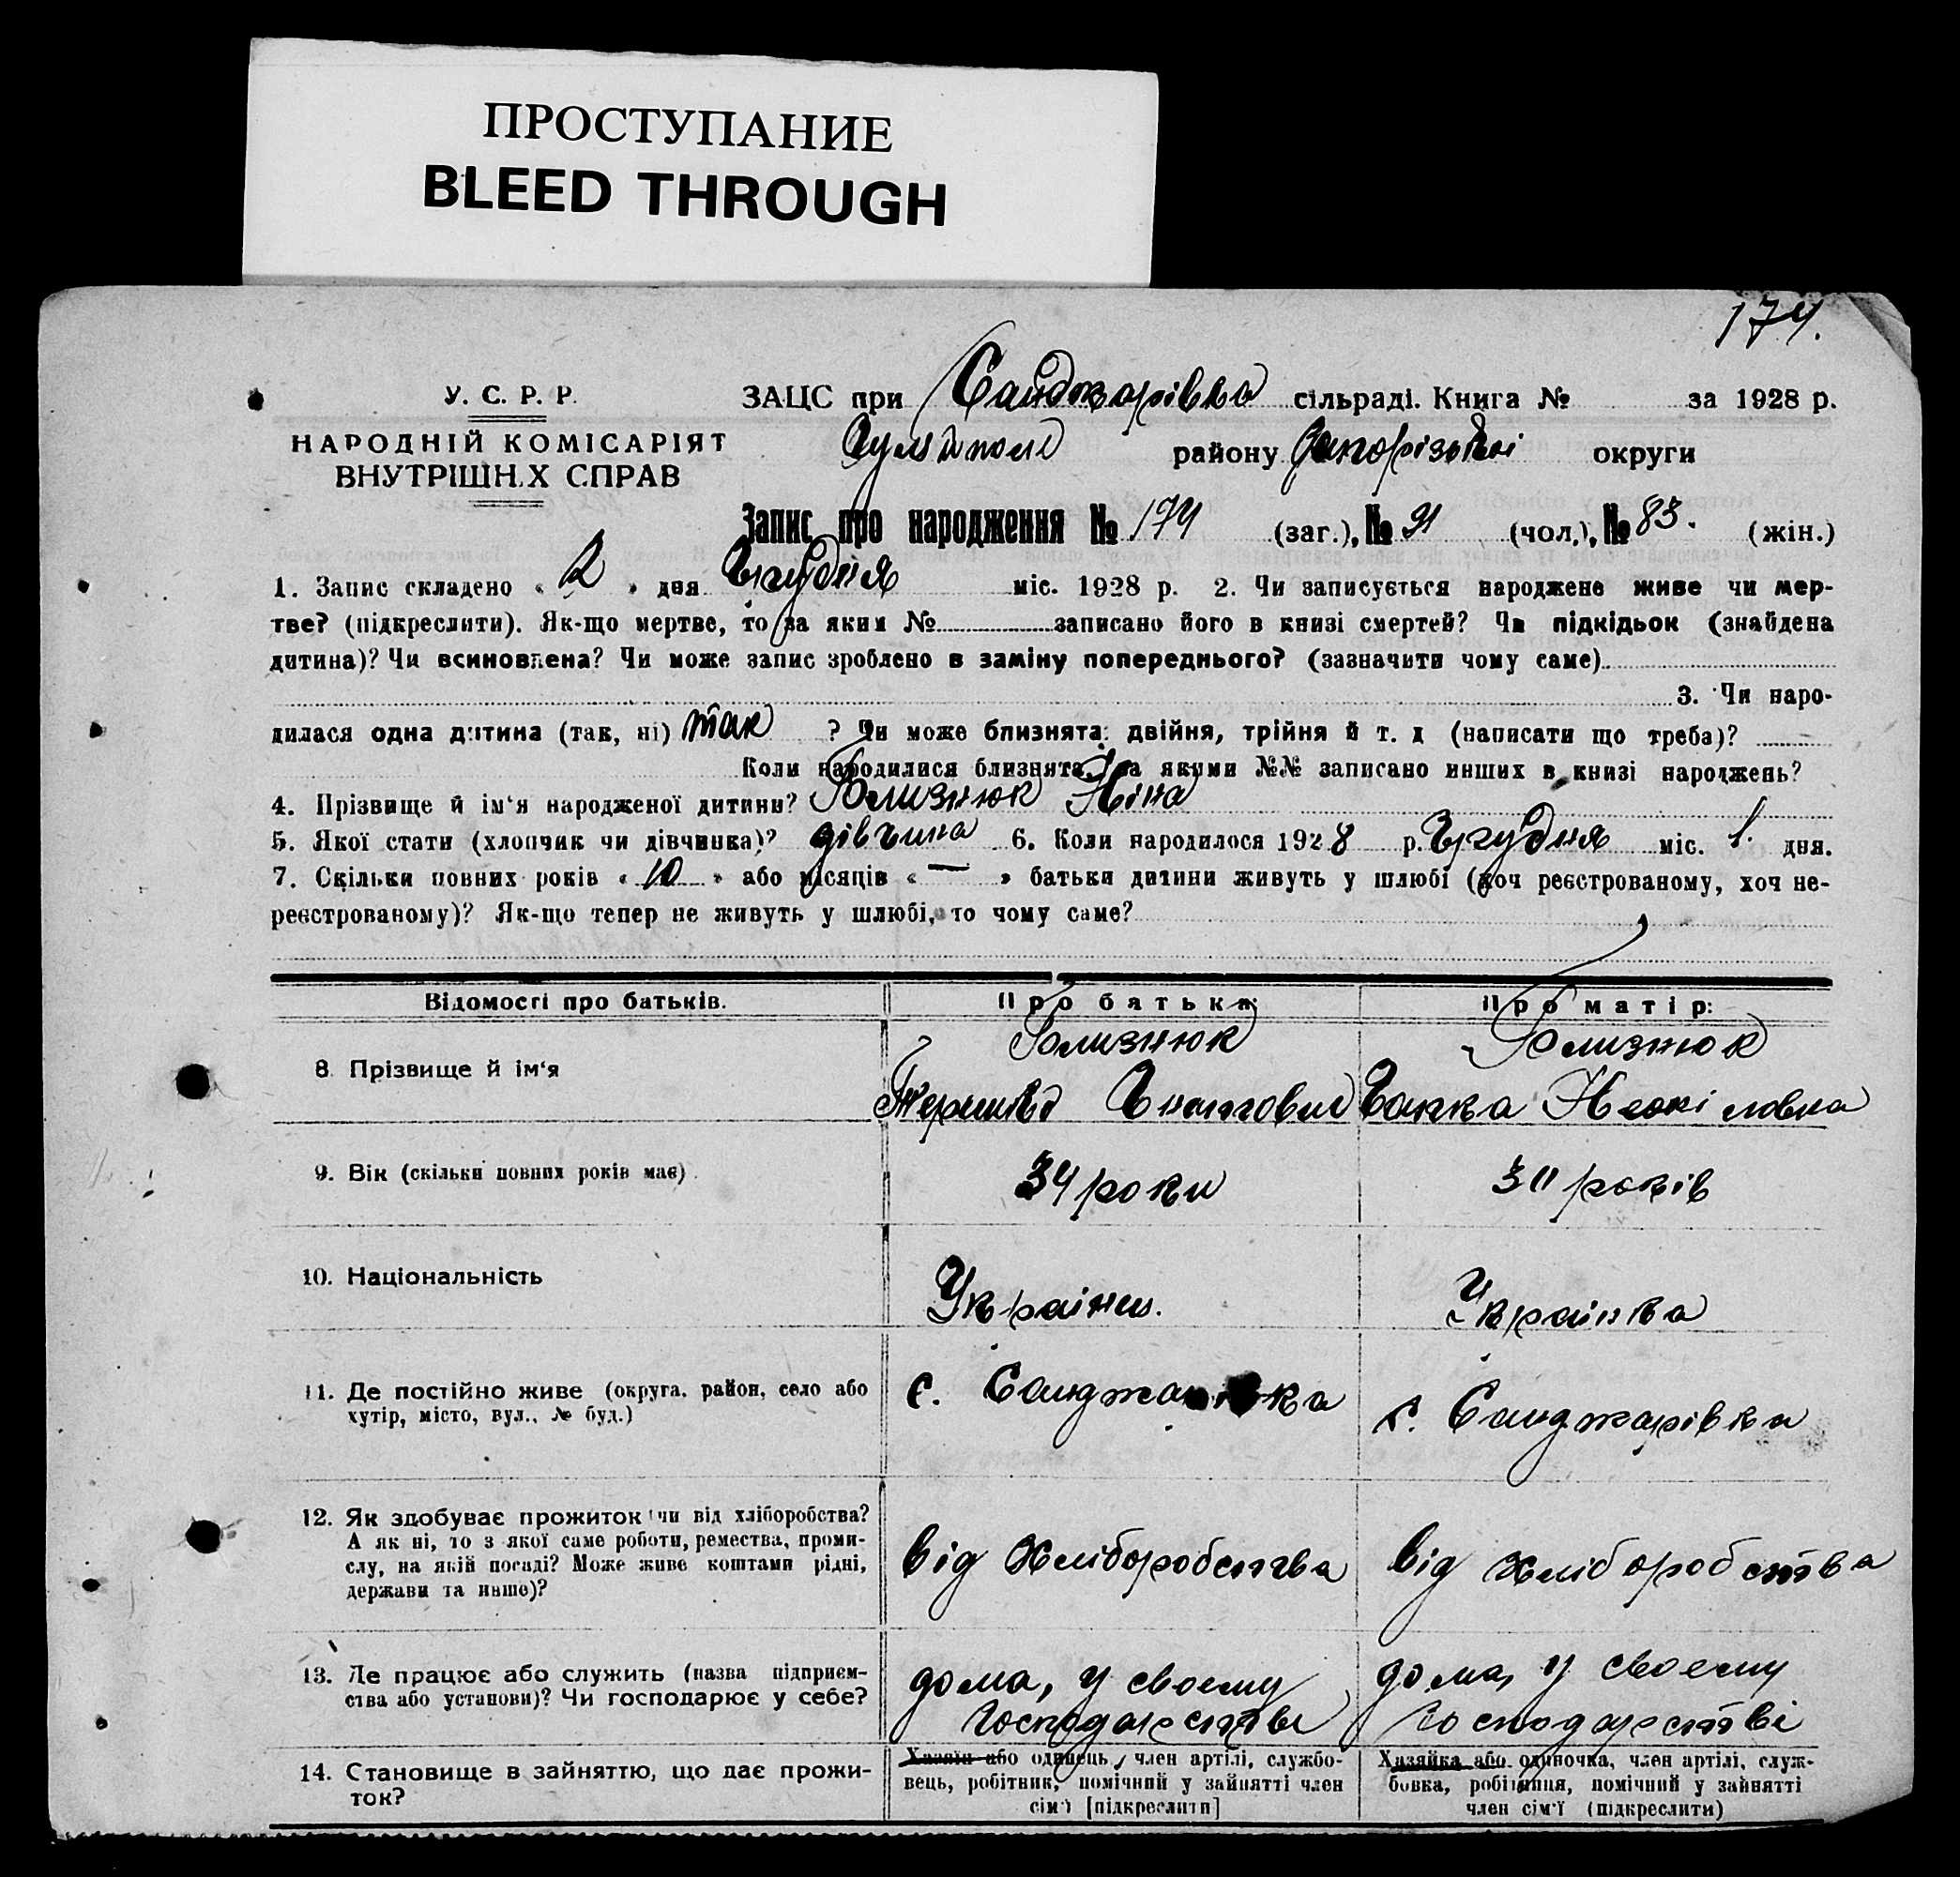 ПРОСТУПАНИЕ
BLEED THROUGH
174.
У. С. Р. Р.
НАРОДНІЙ КОМІСАРІЯТ
ВНУТРІШН.Х СПРАВ
ЗАЦС при Санджарівка сільраді. Книга № за 1928 р.
району Запорізької округи
Запис про народження № 174 (заг.), № 91 (чол.), № 83. (жін.)
1. Запис складено « 2 » дня Грудня міс. 1928 р. 2. Чи записується народжене живе чи мер-
тве? (підкреслити). Як-що мертве, то за яким № записано його в книзі смертей? Чи підкідьок (знайдена
дитина)? Чи всиновлена? Чи може запис зроблено в заміну попереднього? (зазначити чому саме)
3. Чи наро-
дилася одна дитина (так, ні) так ? Чи може близнята: двійня, трійня й т. д (написати що треба)?
Коли народилися близнята, за якими №№ записано инших в книзі народжень?
4. Прізвище й ім‘я народженої дитини? Близнюк Ніна
5. Якої стати (хлопчик чи дівчинка)? дівчина 6. Коли народилося 1928 р. Грудня міс. 1. дня.
7. Скільки повних років « 10 » або місяців « — » батьки дитини живуть у шлюбі (хоч реєстрованому, хоч не-
реєстрованому)? Як-що тепер не живуть у шлюбі, то чому саме?
Відомості про батьків. Про батька: Про матір:
8. Прізвище й ім‘я
Близнюк Близнюк
Ганна
9. Вік (скільки повних років має) 34 роки 30 років
10. Національність Українец. Українка
11. Де постійно живе (округа, район, село або
хутір, місто, вул., № буд.)
с. Санджарівка с. Санджарівка
12. Як здобуває прожиток чи від хліборобства?
А як ні, то з якої саме роботи, ремества, проми-
слу, на якій посаді? Може живе коштами рідні,
держави та инше)?
від хліборобства від хліборобства
13. Де працює або служить (назва підприєм-
ства або установи)? Чи господарює у себе?
дома, у своему дома, у своему
господарстві господарстві
14. Становище в зайняттю, що дає прожи-
ток?
Хазяїн або одинець, член артілі, службо-
вець, робітник, помічний у зайнятті член
сім‘ї [підкреслити]
Хазяйка або одиночка, член артілі, служ-
бовка, робітниця, помічний у зайнятті
член сім‘ї (підкреслити)